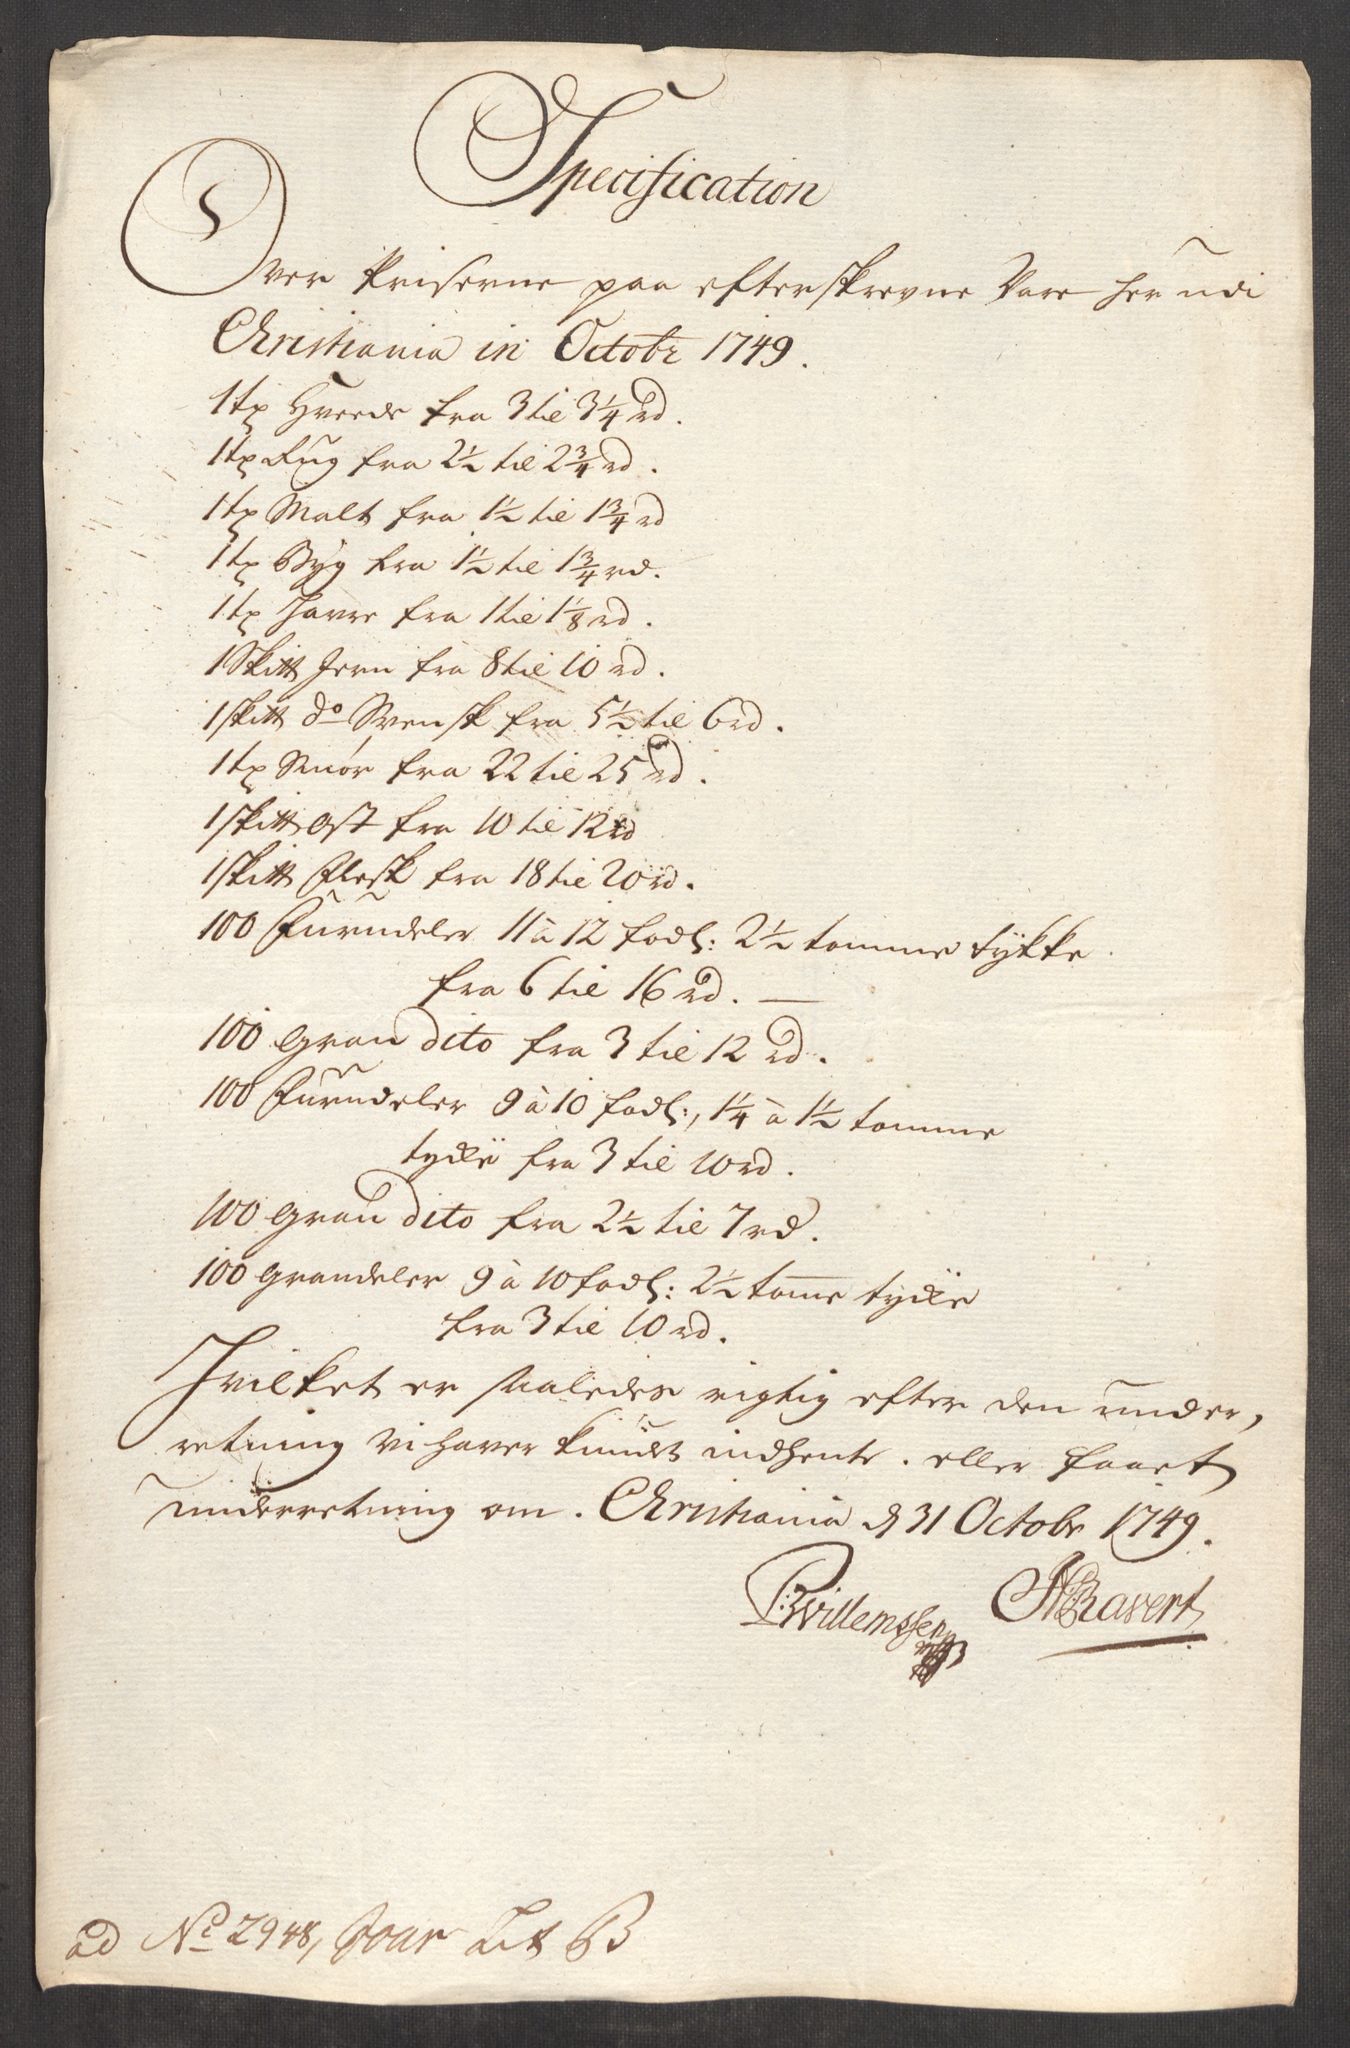 Specification
Over Priserne paa efterskrevne Vare her udi
Christiania in Octobr 1749.
1 tø Hveede fra 3 til 3 1/4 rd.
1 tø Rug fra 2 1/2 til 2 3/4 rd.
1 tø Malt fra 1 1/2 til 1 3/4 rd
1 tø Byg fra 1 1/2 til 1 3/4 rd.
1 tø Havre fra 1 til 1 1/8 rd.
1 Skitt Jern fra 8 til 10 rd.
1 skitt do Svensk fra 5 1/2 til 6 rd.
1 tø Smør fra 22 til 25 rd.
1 skitt Ost fra 10 til 12 rd
1 skitt Flesk fra 18 til 20 rd.
100 Furudeler 11 à 12 fods: 2 1/2 tomme tykke
fra 6 til 16 rd. —
100 gran dito fra 3 til 12 rd.
100 Furudeler 9 à 10 fods:, 1 1/4 à 1 1/2 tomme
tycke fra 3 til 10 rd.
100 gran dito fra 2 1/2 til 7 rd.
100 grandeler 9 à 10 fods: 2 1/2 tome tycke
fra 3 til 10 rd.
Hvilket er saaledes rigtig efter den under,
retning vi haver kundet indhente. eller faaet
underretning om. Christiania d 31 Octobr 1749.
P:Willemssen HBavert
ad No 2948, Lit B